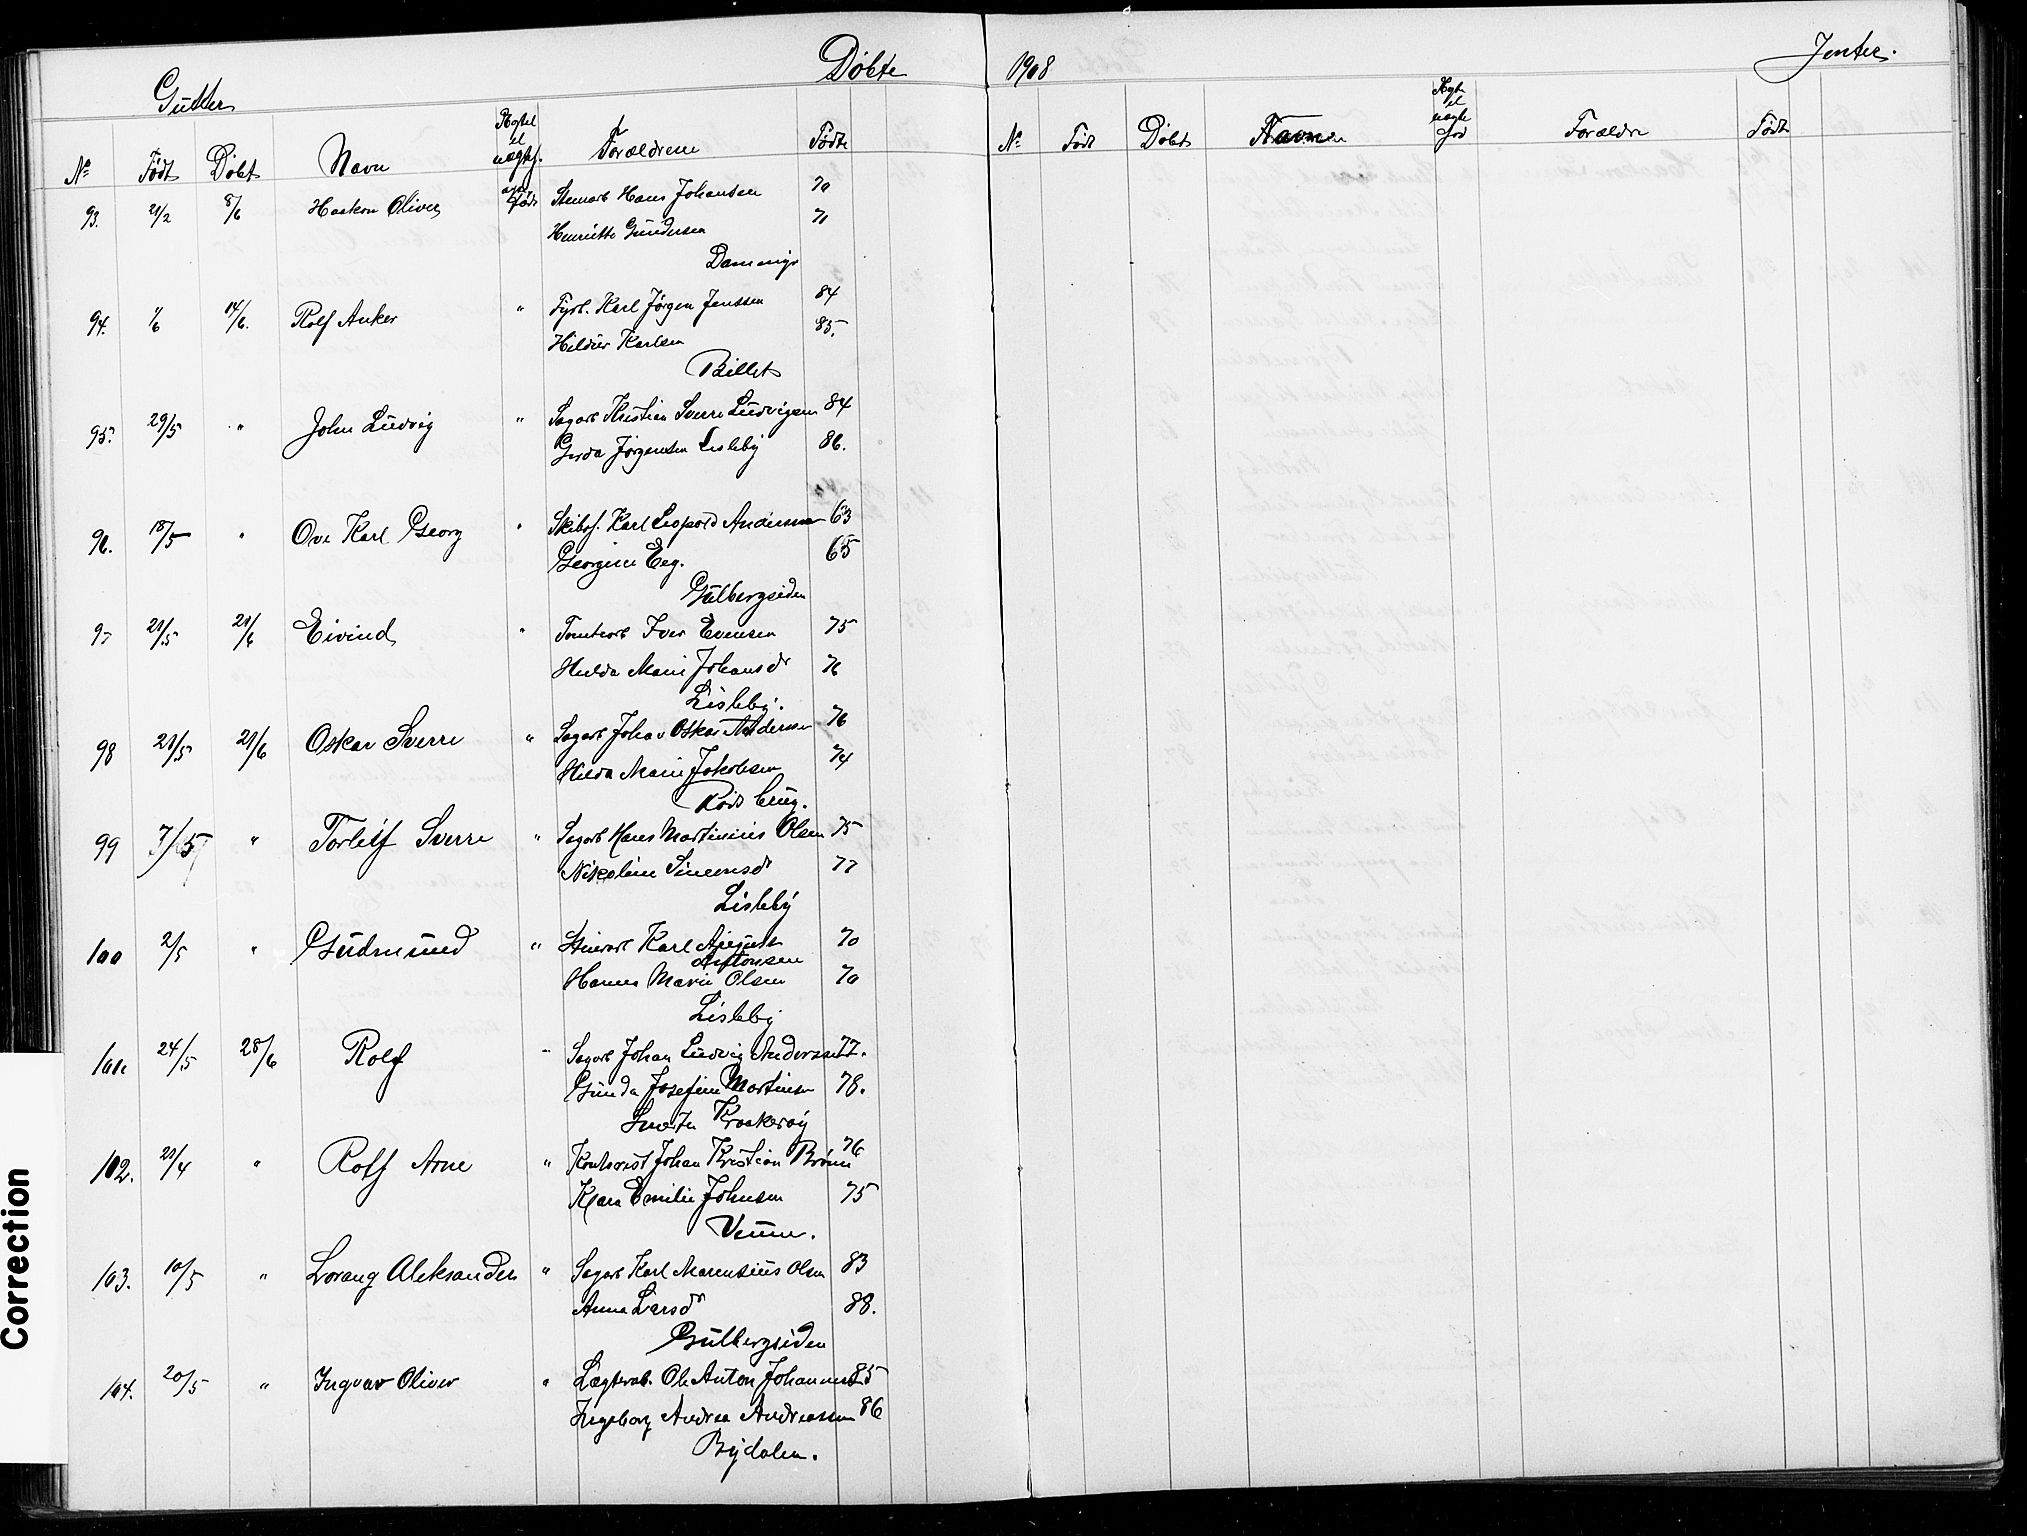 Døbte 1908
Gutter
Jenter.
No Født Døbt Navn Ægte el uægtef. Forældrene Født
No Født Døbt Navn Ægte el uægte fød Forældre Født
93. 21/2 8/6 Haakon Oliver Stenarb Hans Johansen 70
Henriette Gundersen 71
Damengs
94. 1/6 14/6. Rolf Anker " Fyrb. Karl Jørgen Jenssen 84
Karlsen 85.
Billet
95. 29/5 " John Ludvig " Sagarb Kristian Sverre Ludvigsen 84
Gerda Jørgensen Lisleby 86.
96. 18/5 " Ove Karl Georg " Skibsf. Karl Leopold Andersen 63
Georgine Eeg. 65
Gulbergsiden
97 21/5 21/6 Eivind " Tomtearb Iver Evensen 75
Hulda Marie Johansdr 76
Lisleby.
98 21/5 21/6 Oskar Sverre " Sagarb Johan Oskar Andersen 76
Hilda Marie Jakobsen 74
Røds brug.
99 7/5 " Torleif Sverre " Sagarb Hans Martinius Olsen 75
Nikoline Simensdr 77
Lisleby
100 2/5 " Gudmund " Stenarb Karl August 70
Antonsen
Hanna Marie Olsen 70
Lisleby
101. 24/5 28/6 Rolf " Sagarb Johan Ludvig Anderssen 77.
Gunda Josefine Martinsen 78.
Smerten Kraakerøy
102. 21/4 " Rolf Arne " Kontorist Johan Kristian Brønn 76
Klara Emilie Johnsen 75
Veum.
103. 10/5 " Lorang Aleksander " Sagarb Karl Marensius Olsen 83
Anna Larsdr 88.
Gulbergsiden
104. 20/5 " Ingvar Oliver " Lægterarb. Ole Anton Johannes 85
Ingeborg Andrea Andreassen 86
Bydalen.
Correction